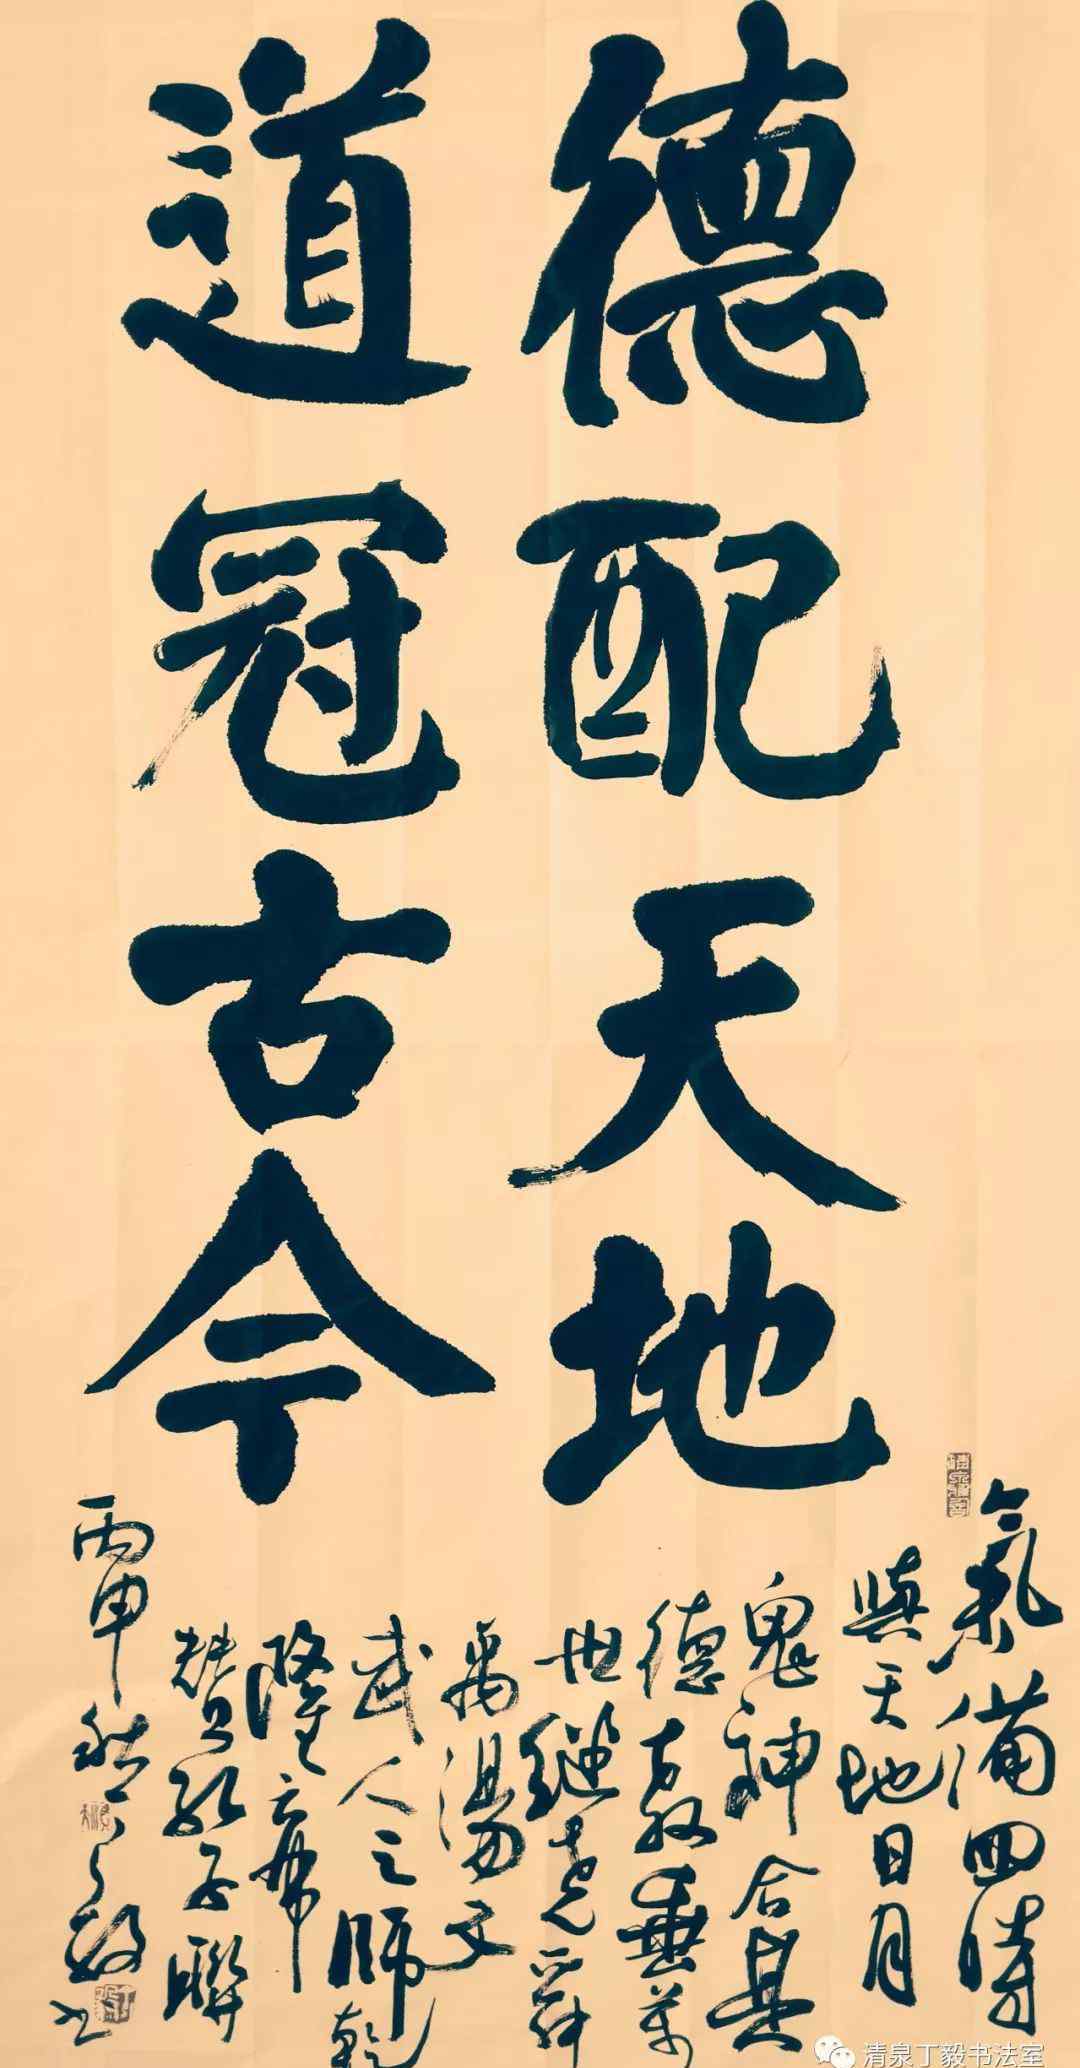 德配天地
道冠古今
氣備四時
與天地日月
鬼神合其
德教垂萬
世繼堯舜
禹湯文
武人之師乾
隆之弟
贊孔子聯
丙申秋丁毅书
清泉丁毅书法室